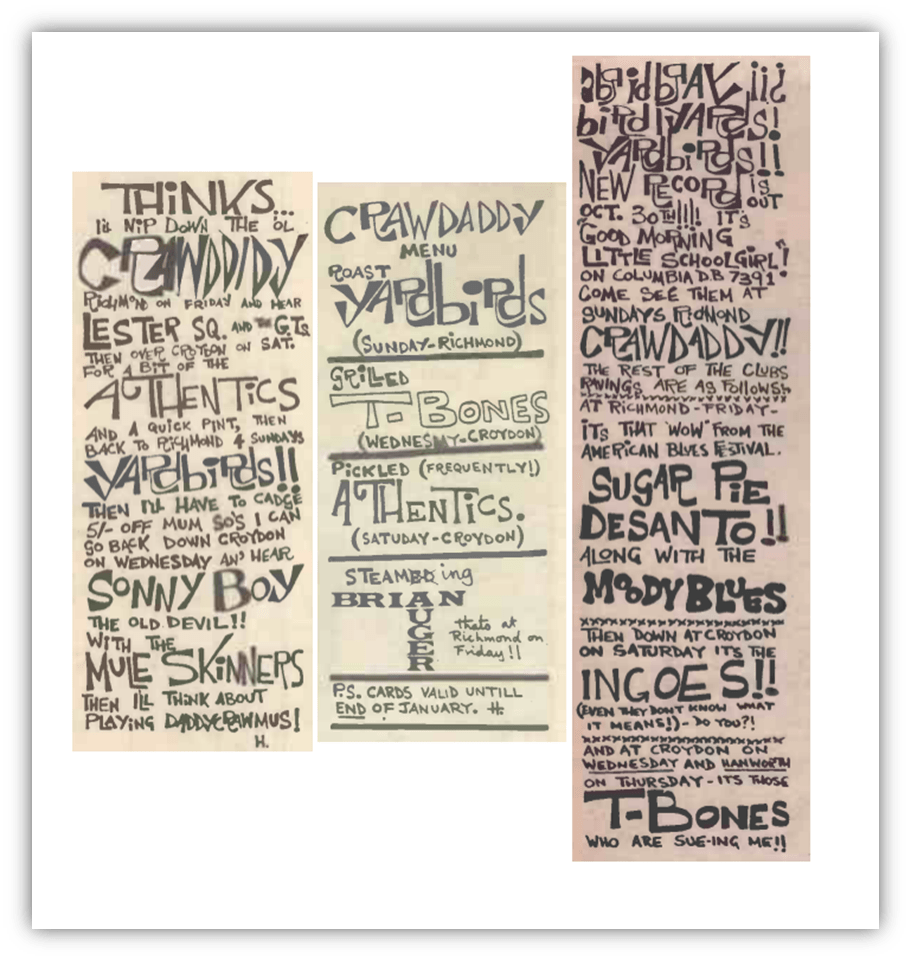 THINKS...
I'll NIP DOWN THE OL
CRAWDDIDY
RICHMOND ON FRIDAY AND HEAR
LESTER SQ. AND THE G.Ts
THEN OVER CROYDON ON SAT.
FOR A BIT OF THE
AUTHENTICS
AND A QUICK PINT, THEN
BACK TO RICHMOND 4 SUNDAYS
YARDBIRDS!!
THEN I'LL HAVE TO CADGE
5/- OFF MUM SO'S I CAN
GO BACK DOWN CROYDON
ON WEDNESDAY AN' HEAR
SONNY BOY
THE OLD DEVIL!!
WITH THE
MULE SKINNERS
THEN ILL THINK ABOUT
PLAYING DADDYCRAWMUS!
H.
CRAWDADDY
MENU
ROAST
YARDbiRDS
(SUNDAY-RICHMOND)
GRILLED
T-BONES
(WEDNESDAY-CROYDON)
PICKLED (FREQUENTLY!)
AUTHENTICS.
(SATUDAY-CROYDON)
STEAM ing
BRIAN
AUGER
thats at
Richmond on
Friday!!
P.S. CARDS VALID UNTILL
END OF JANUARY. H.
biRdYARDS!
YARDbiRDS!!
NEW RECORD IS
OUT
OCT. 30TH!!!! IT'S
GOOD MORNING
LITTLE SCHOOLGIRL!
ON COLUMBIA D.B 7391
COME SEE THEM AT
SUNDAYS RICHMOND
CRAWDADDY!!
THE REST OF THE CLUBS
RAVINGS ARE AS FOLLOWS
AT RICHMOND-FRIDAY-
ITS THAT 'WOW' FROM THE
AMERICAN BLUES FESTIVAL.
SUGAR PIE
DESANTO!!
ALONG WITH THE
MOODY BLUES
xxxxxxxxxxxxxxxxxxxx
THEN DOWN AT CROYDON
ON SATURDAY IT'S THE
INGOES!!
(EVEN THEY DON'T KNOW WHAT
IT MEANS!)-DO YOU?!
xxxxxxxxxxxxxxxxxxxx
AND AT CROYDON ON
WEDNESDAY AND HANWORTH
ON THURSDAY-ITS THOSE
T-BONES
WHO ARE SUE-ING ME!!